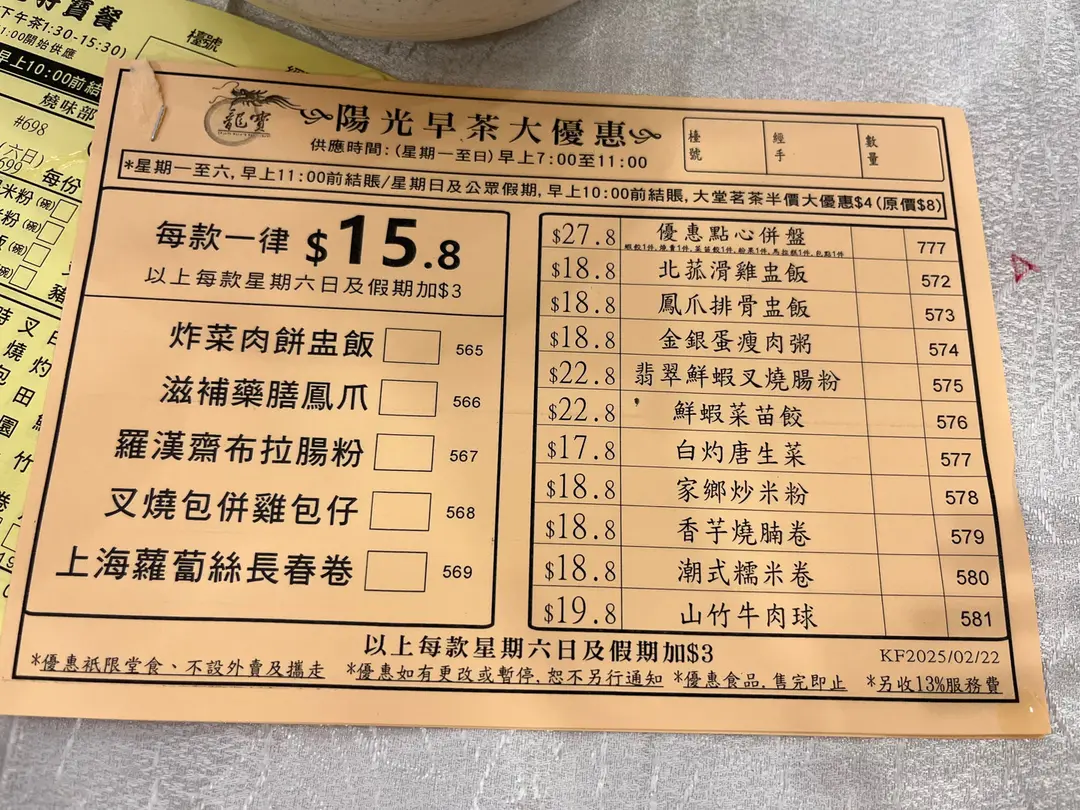 寶餐
下午茶1:30-15:30)
1:00開始供應
早上10:00前結
燒味部
#698
檯號
六日)
699
每份
米粉(碗)
龍寶
陽光早茶大優惠
供應時間:(星期一至日)早上7:00至11:00
檯號
經手
數量
*星期一至六,早上11:00前結賬/星期日及公眾假期,早上10:00前結賬,大堂茗茶半價大優惠$4(原價$8)
每款一律 $15.8
以上每款星期六日及假期加$3
炸菜肉餅盅飯 565
滋補藥膳鳳爪 566
羅漢齋布拉腸粉 567
叉燒包併雞包仔 568
上海蘿蔔絲長春卷 569
$27.8 優惠點心併盤 777
蝦餃1件,燒賣1件,菜苗餃1件,粉果1件,馬拉糕1件,包點1件
$18.8 北菰滑雞盅飯 572
$18.8 鳳爪排骨盅飯 573
$18.8 金銀蛋瘦肉粥 574
$22.8 翡翠鮮蝦叉燒腸粉 575
$22.8 鮮蝦菜苗餃 576
$17.8 白灼唐生菜 577
$18.8 家鄉炒米粉 578
$18.8 香芋燒腩卷 579
$18.8 潮式糯米卷 580
$19.8 山竹牛肉球 581
以上每款星期六日及假期加$3
KF2025/02/22
*優惠祇限堂食、不設外賣及攜走 *優惠如有更改或暫停,恕不另行通知 *優惠食品,售完即止 *另收13%服務費